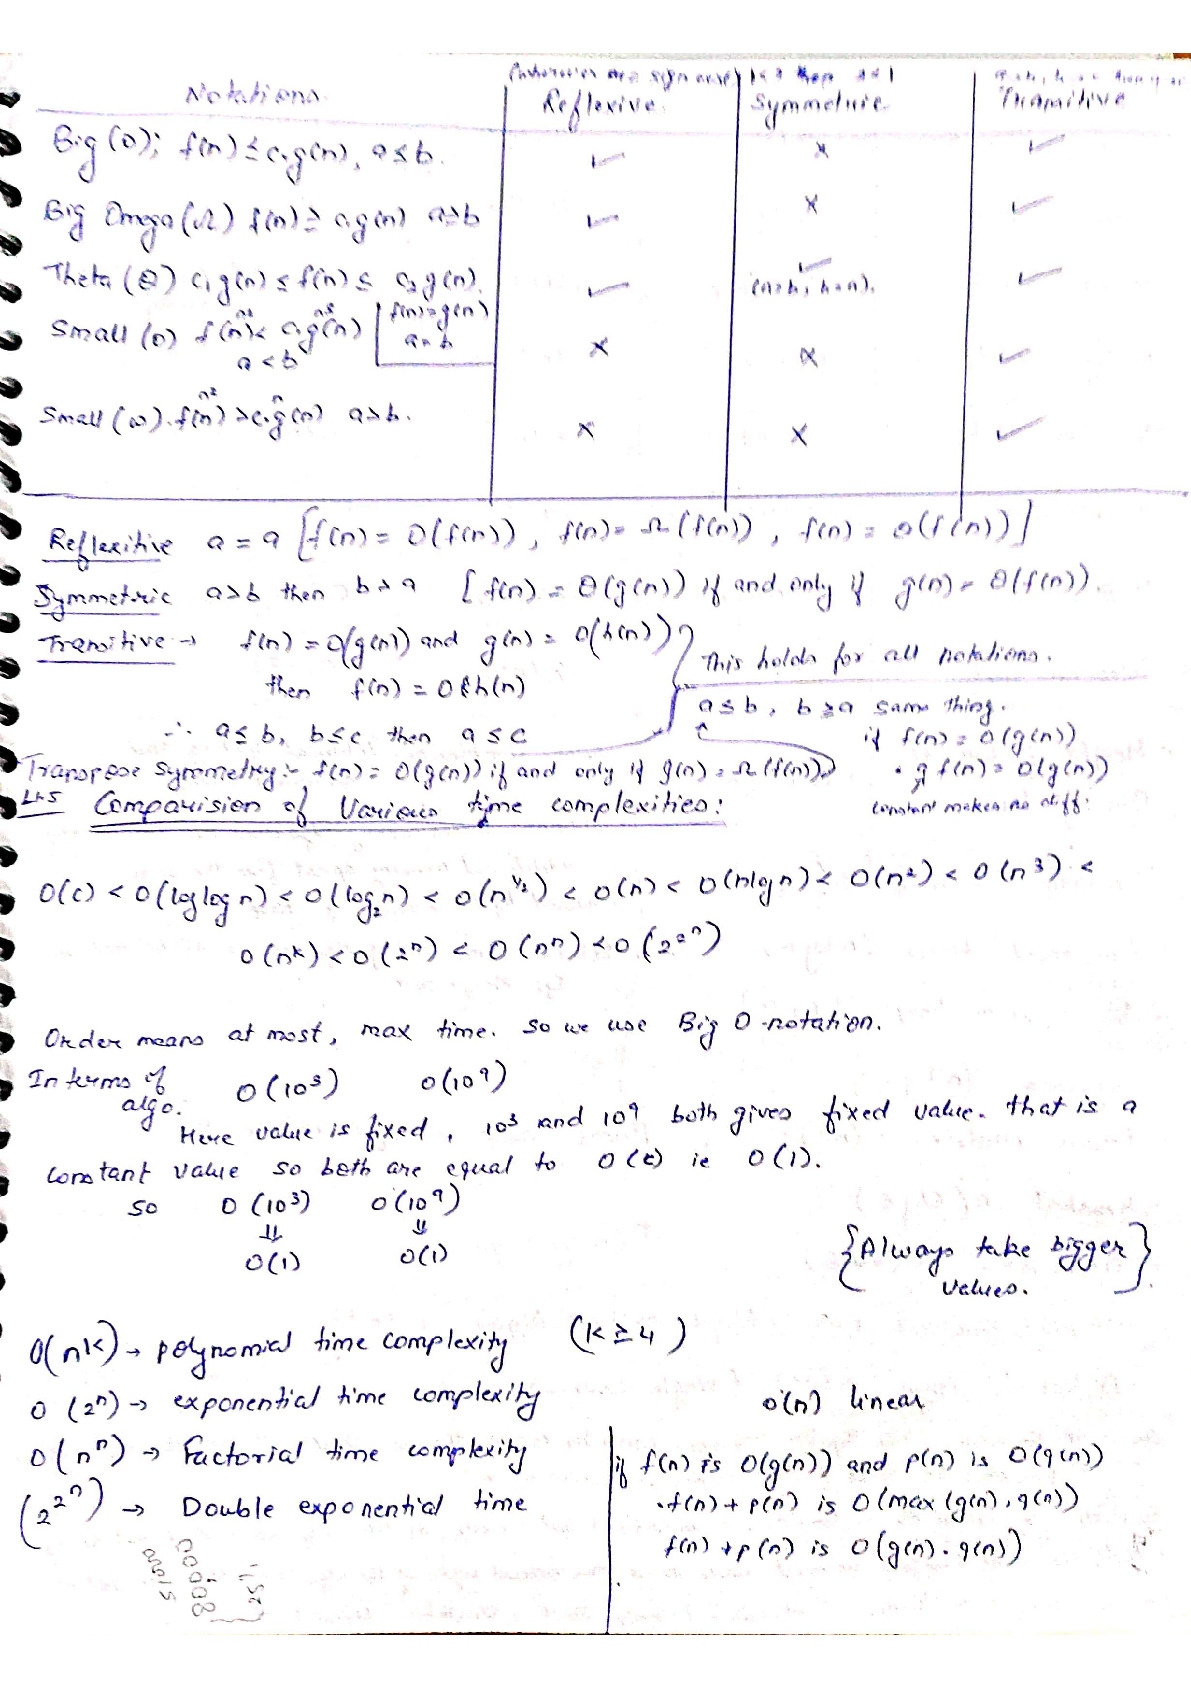 Notations. Reflexive. Symmetric. Transitive
Big (O); f(n) ≤ c.g(n), a ≤ b. ✓ × ✓
Big Omega (Ω) f(n) ≥ c.g(n) a ≥ b ✓ × ✓
Theta (θ) c₁g(n) ≤ f(n) ≤ c₂g(n). ✓ ✓ ✓
f(n) = g(n)
a = b
Small (o) f(n) < c.g(n) × × ✓
a < b
Small (ω). f(n) > c.g(n) a > b. × × ✓
Reflexitive a = a [f(n) = O(f(n)), f(n) = Ω(f(n)), f(n) = θ(f(n))]
Symmetric a>b then b>a [f(n) = θ(g(n)) if and only if g(n) = θ(f(n)).
Transitive → f(n) = O(g(n)) and g(n) = O(h(n))
This holds for all notations.
then f(n) = O(h(n)
a ≤ b, b ≥ a same thing.
∴ a ≤ b, b ≤ c then a ≤ c
if f(n) = O(g(n))
Transpose Symmetry:- f(n) = O(g(n)) if and only if g(n) = Ω(f(n))
g f(n) = O(g(n))
constant makes no diff.
L-5 Comparision of Various time complexities:
O(c) < O(log log n) < O(log₂n) < O(n^½) < O(n) < O(nlog n) < O(n²) < O(n³) <
O(n^k) < O(2^n) < O(n^n) < O(2^2^n)
Order means at most, max time. So we use Big O-notation.
In terms of algo. O(10³) O(10⁹)
Here value is fixed, 10³ and 10⁹ both gives fixed value. that is a
constant value so both are equal to O(c) ie O(1).
so O(10³) O(10⁹)
⇓ ⇓
O(1) O(1)
{Always take bigger values.}
O(n^k) → polynomial time complexity (k ≥ 4)
O(2^n) → exponential time complexity
O(n) linear
O(n^n) → Factorial time complexity
(2^2^n) → Double exponential time
if f(n) is O(g(n)) and p(n) is O(q(n))
.f(n) + p(n) is O(max(g(n), q(n))
f(n) + p(n) is O(g(n) . q(n))